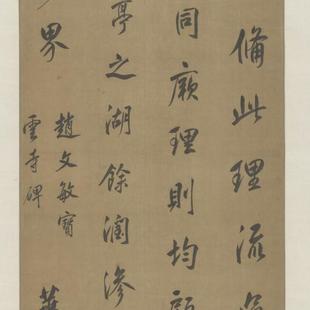 備此理流
同厥理則均
亭之湖餘潤滲
界
趙文敏寶
雲寺碑